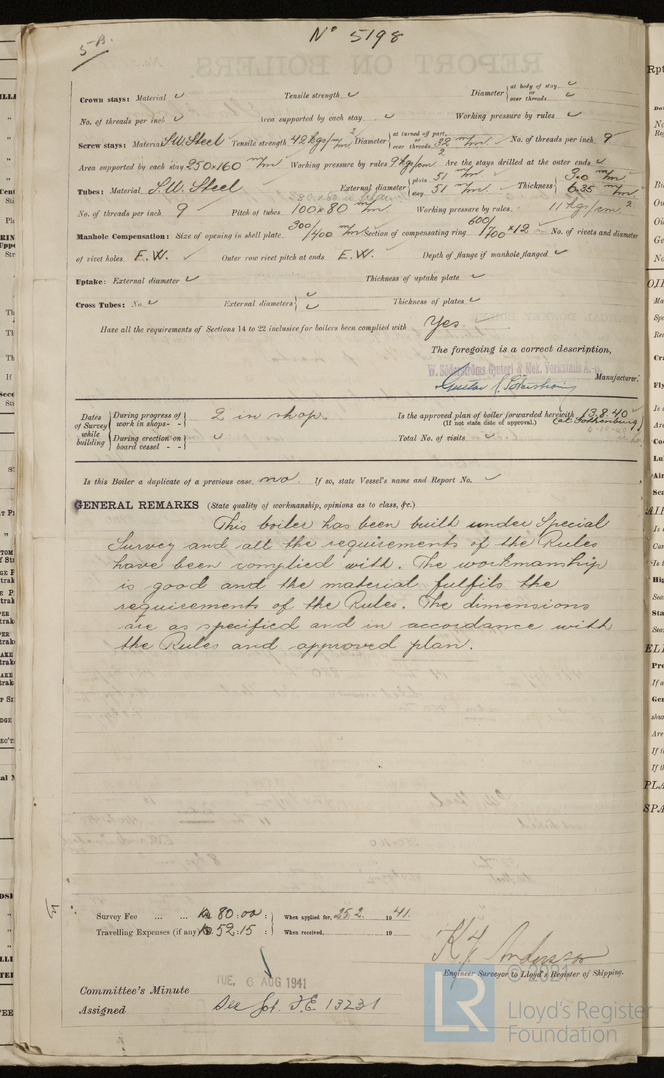 5-B.
No 5198
Crown stays: Material ✓ Tensile strength ✓ Diameter { at body of stay ✓ or over threads ✓
No. of threads per inch ✓ Area supported by each stay ✓ Working pressure by rules ✓
Screw stays: Material S.M. Steel Tensile strength 42 kgs/m/m² Diameter { at turned off part, or over threads. 32 m/m. No. of threads per inch 9
Area supported by each stay 250x160 m/m Working pressure by rules 9 kg/cm² Are the stays drilled at the outer ends ✓
Tubes: Material S.M. Steel External diameter { plain 51 m/m. stay 51 m/m. Thickness { 3.0 m/m 6.35 m/m
No. of threads per inch. 9 Pitch of tubes 100x80 m/m. Working pressure by rules. 11 kg/cm²
Manhole Compensation: Size of opening in shell plate 300/400 m/m Section of compensating ring 600/700 x 12 No. of rivets and diameter
of rivet holes. E.W. Outer row rivet pitch at ends E.W. Depth of flange if manhole flanged ✓
Uptake: External diameter ✓ Thickness of uptake plate ✓
Cross Tubes: No. ✓ External diameters { ✓ ✓ Thickness of plates ✓
Have all the requirements of Sections 14 to 22 inclusive for boilers been complied with Yes.
The foregoing is a correct description,
W. Söderströms Gjuteri & Mek. Verkstads A.-B.
Manufacturer.
Dates of Survey while building { During progress of work in shops - - } 2 in shop. Is the approved plan of boiler forwarded herewith 13.8.40
(If not state date of approval.) (at Gothenburg)
{ During erection on board vessel - - } ✓ Total No. of visits ✓
Is this Boiler a duplicate of a previous case. no. If so, state Vessel's name and Report No. ✓
GENERAL REMARKS (State quality of workmanship, opinions as to class, &c.)
This boiler has been built under Special
Survey and all the requirements of the Rules
have been complied with. The workmanship
is good and the material fulfils the
requirements of the Rules. The dimensions
are as specified and in accordance with
the Rules and approved plan.
Survey Fee ... ... Kr. 80:00: When applied for, 25.2. 1941.
Travelling Expenses (if any) Kr. 52:15: When received, 19
K. J. Anderson
Engineer Surveyor to Lloyd's Register of Shipping.
Committee's Minute TUE. 6 AUG 1941
Assigned See Got. F.E. 13231
© 2021
LR
Lloyd's Register
Foundation